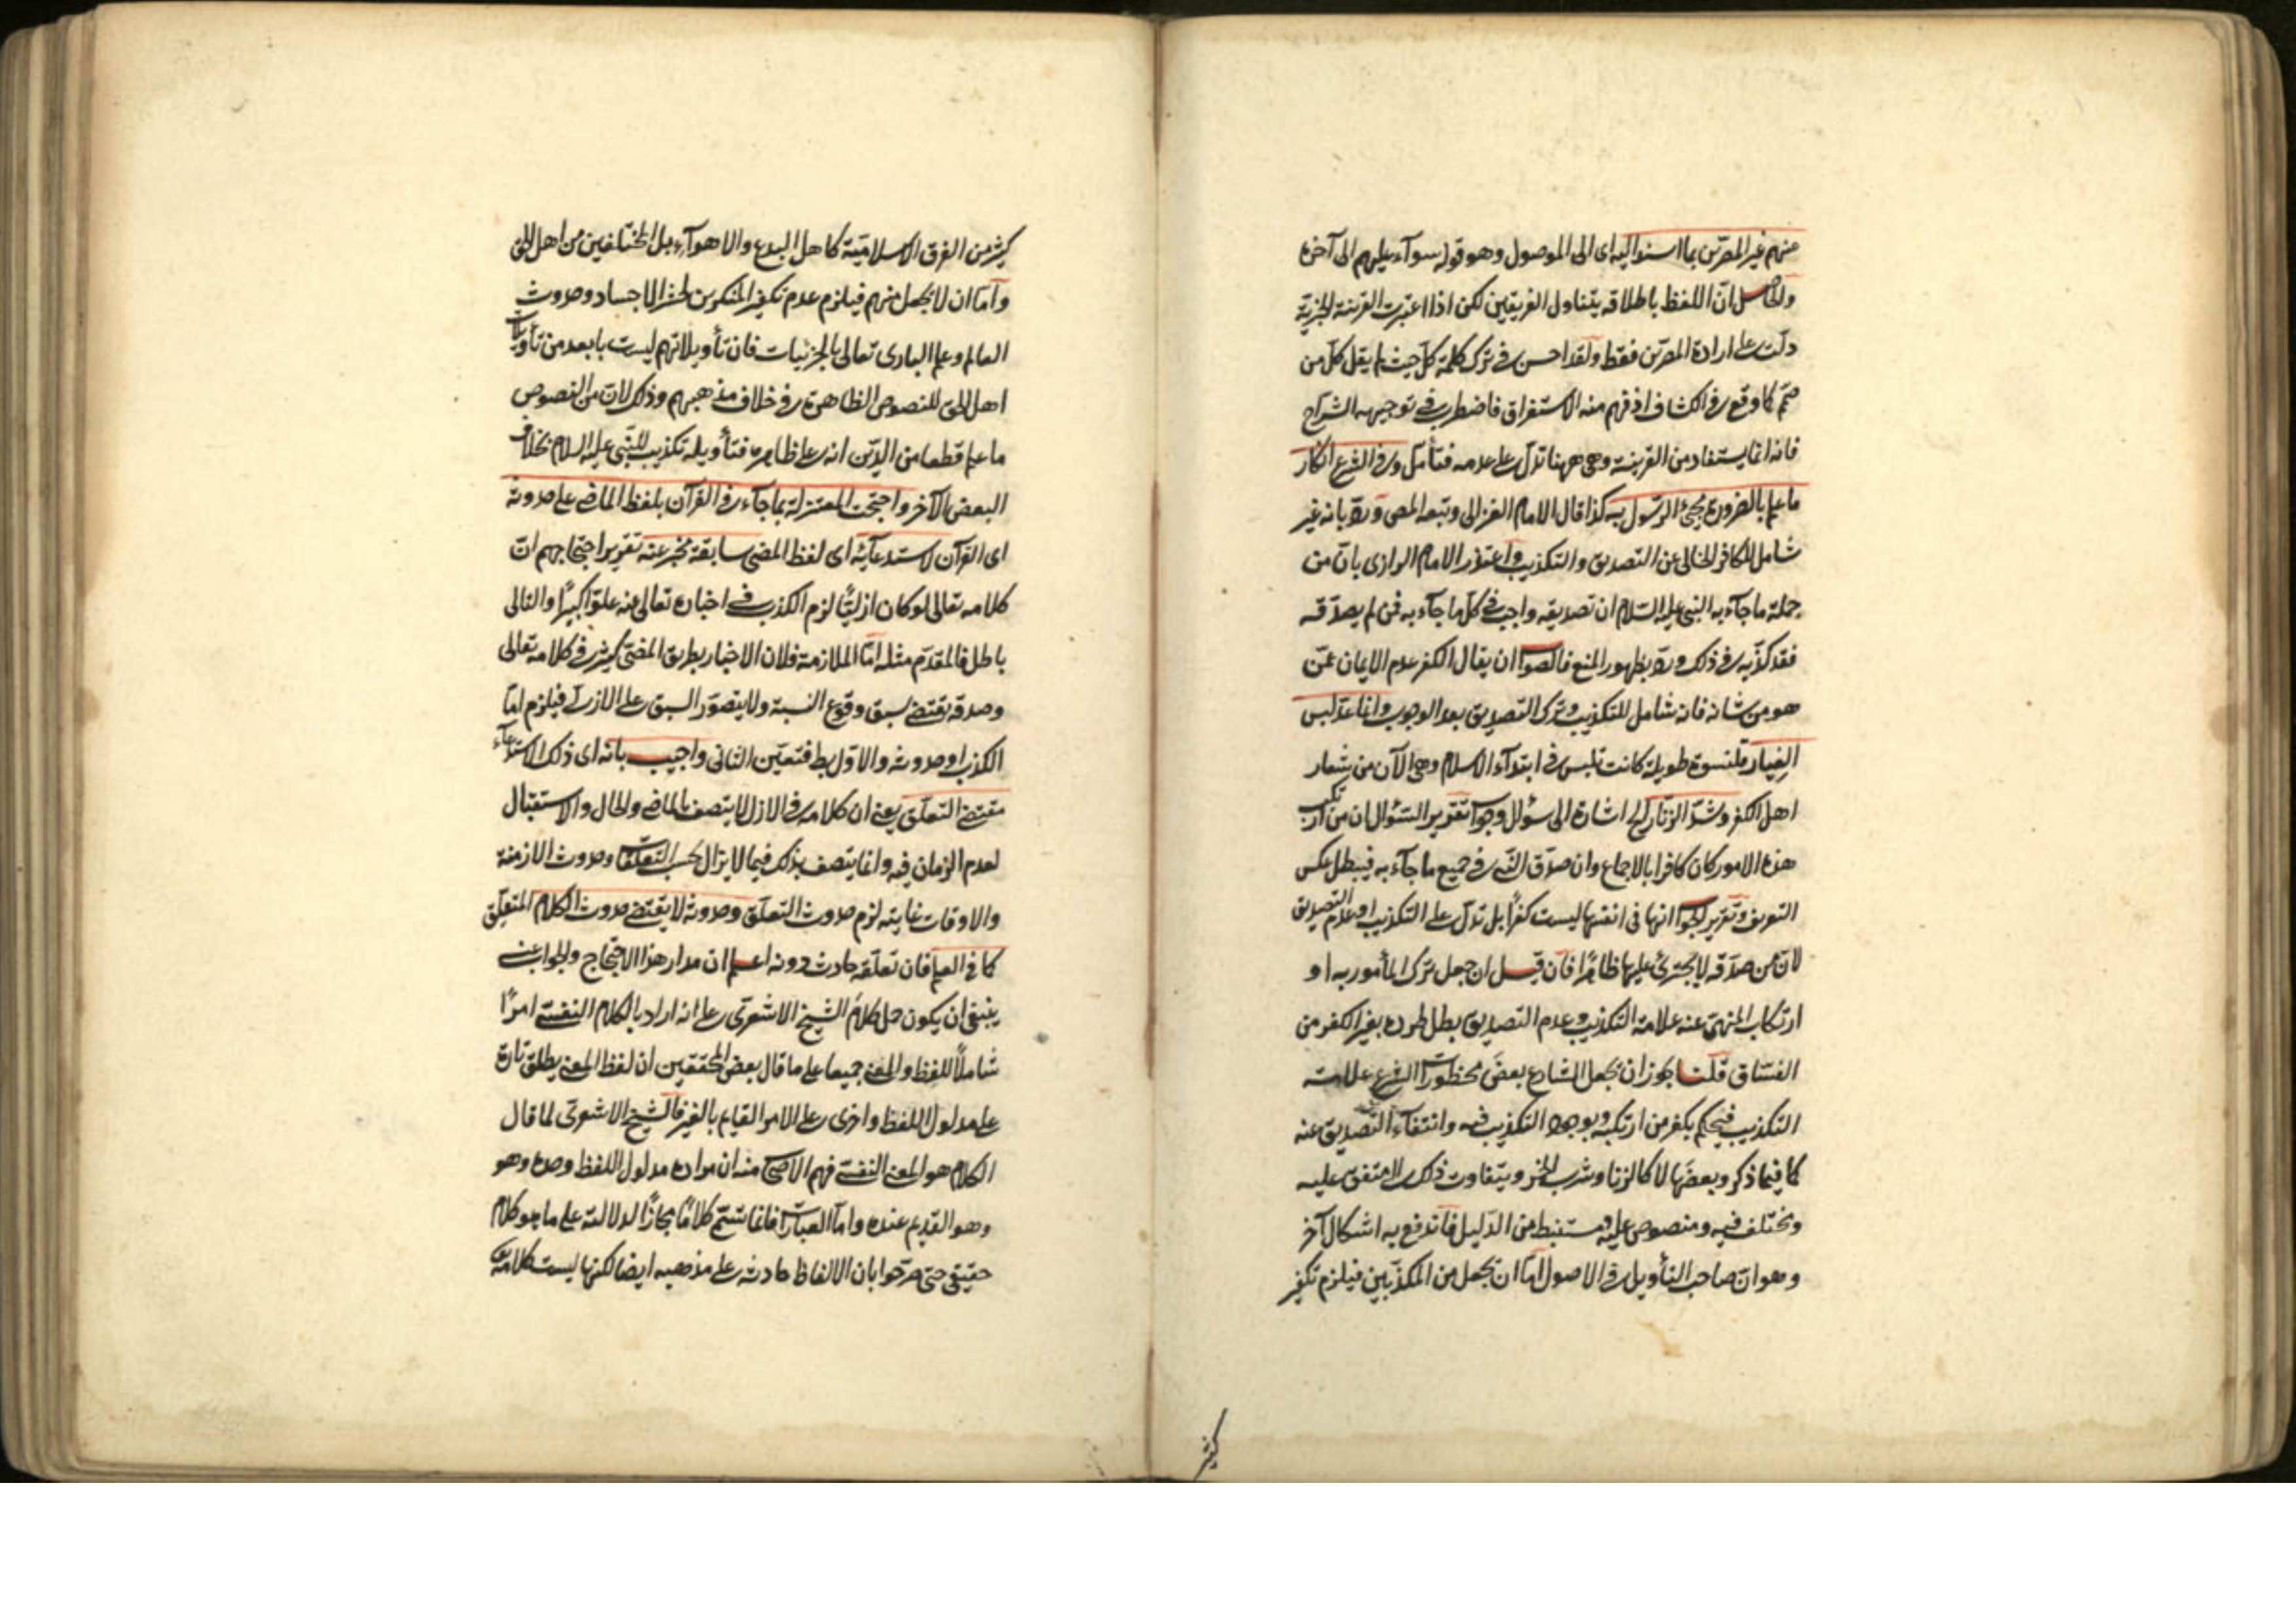 منهم غير المصرّين بما اسند اليه اى الى الموصول وهو قوله سوآء عليهم الى آخره
والحاصل انّ اللفظ باطلاقه يتناول الفريقين لكن اذا اعتبرت القرينة الخبريّة
دلّت على ارادة المصرّين فقط ولقد احسن فى ترك كلمة كلّ حيث لم يقل كلّ من
صمّم كما وقع فى الكشاف اذ فهم منه الاستغراق فاضطرب فى توجيهه الشرّاح
فانه انما يستفاد من القرينة وهى ههنا تدلّ على عدمه فتأمّل وفى الشرع انكار
ما علم بالضرورة مجئ الرسول به كذا قال الامام الغزالى وتبعه المص وردّ بانه غير
شامل للكافر الخالى عن التصديق والتكذيب واعتذر الامام الرازى بانّ من
جملة ما جآء به النبى عليه السلام ان تصديقه واجب فى كلّ ما جآء به فمن لم يصدّقه
فقد كذّبه فى ذلك وردّ بظهور المنع فالصواب ان يقال الكفر عدم الايمان عمّن
هو من شانه فانه شامل للتكذيب وترك التصديق بعد الوجوب وانما عدّ لبس
الغيار قلنسوة طويلة كانت تلبس فى ابتدآء الاسلام وهى الآن من شعار
اهل الكفر وشدّ الزنّار الخ اشارة الى سؤال وجواب تقرير السّؤال ان من ارتكب
هذه الامور كان كافرا بالاجماع وان صدّق النّبى فى جميع ما جآء به فيبطل عكس
التعريف وتقرير الجواب انها فى انفسها ليست كفرًا بل تدلّ على التكذيب او عدم التصديق
لانّ من صدّقه لا يجترئ عليها ظاهرًا فان قيل ان جعل ترك المأمور به او
ارتكاب المنهىّ عنه علامة التكذيب وعدم التصديق بطل طرده بغير الكفر من
الفسّاق قلنا يجوز ان يجعل الشارع بعضَ محظورات الشرع علامة
التكذيب فيحكم بكفر من ارتكبه وبوجود التكذيب فيه وانتفآء التصديق عنه
كما فيما ذكر وبعضَها لا كالزنا وشرب الخمر ويتفاوت ذلك الى متفق عليه
ومختلف فيه ومنصوص عليه ومستنبط من الدّليل فاندفع به اشكال آخر
وهو انّ صاحب التأويل فى الاصول امّا ان يجعل من المكذّبين فيلزم تكفير
كثير
كثير من الفرق الاسلاميّة كاهل البدع والاهوآء بل المختلفين من اهل الحق
وامّا ان لا يجعل منهم فيلزم عدم تكفير المنكرين لحشر الاجساد وحدوث
العالم وعلم البارى تعالى بالجزئيات فان تأويلاتهم ليست بابعد من تأويلات
اهل الحق للنصوص الظاهرة فى خلاف مذهبهم وذلك لانّ من النصوص
ما علم قطعا من الدّين انه على ظاهره فتأويله تكذيب للنّبى عليه السلام بخلاف
البعض الآخر واحتجّت المعتزلة بما جآء فى القرآن بلفظ الماضى على حدوثه
اى القرآن لاستدعآئه اى لفظ المضى سابقة مخبر عنه تقرير احتجاجهم انّ
كلامه تعالى لو كان ازليًّا لزم الكذب فى اخباره تعالى عنه علوّا كبيرًا والتالى
باطل فالمقدّم مثله امّا الملازمة فلان الاخبار بطريق المضىّ كثير فى كلامه تعالى
وصدقه يقتضى سبق وقوع النسبة ولا يتصوّر السبق على الازل فيلزم امّا
الكذب او حدوثه والاوّل بط فتعيّن الثانى واجيب بانه اى ذلك الاستدعآء
مقتضى التعلّق يعنى ان كلامه فى الازل لا يتصف بالماضى والحال والاستقبال
لعدم الزمان فيه وانما يتصف بذلك فيما لا يزال بحسب التعلّقات وحدوث الازمنة
والاوقات غايته لزم حدوث التعلّق وحدوثه لا يقتضى حدوث الكلام المتعلّق
كما فى العلم فان تعلّقه حادث دونه اعلم ان مدار هذا الاحتجاج والجواب عنه
ينبغى ان يكون حمل كلام الشيخ الاشعرى على انه اراد بالكلام النفسى امرًا
شاملًا للفظ والمعنى جميعا على ما قال بعض المحققين ان لفظ المعنى يطلق تارة
على مدلول اللفظ واخرى على الامر القايم بالغير فالشيخ الاشعرى لما قال
الكلام هو المعنى النفسى فهم الاصحاب منه ان مراده مدلول اللفظ وحده وهو
وهو القديم عنده وامّا العبارات فانما تسمّى كلامًا مجازًا لدلالته على ما هو كلام
حقيقى حتى صرّحوا بان الالفاظ حادثة على مذهبه ايضا لكنها ليست كلامه